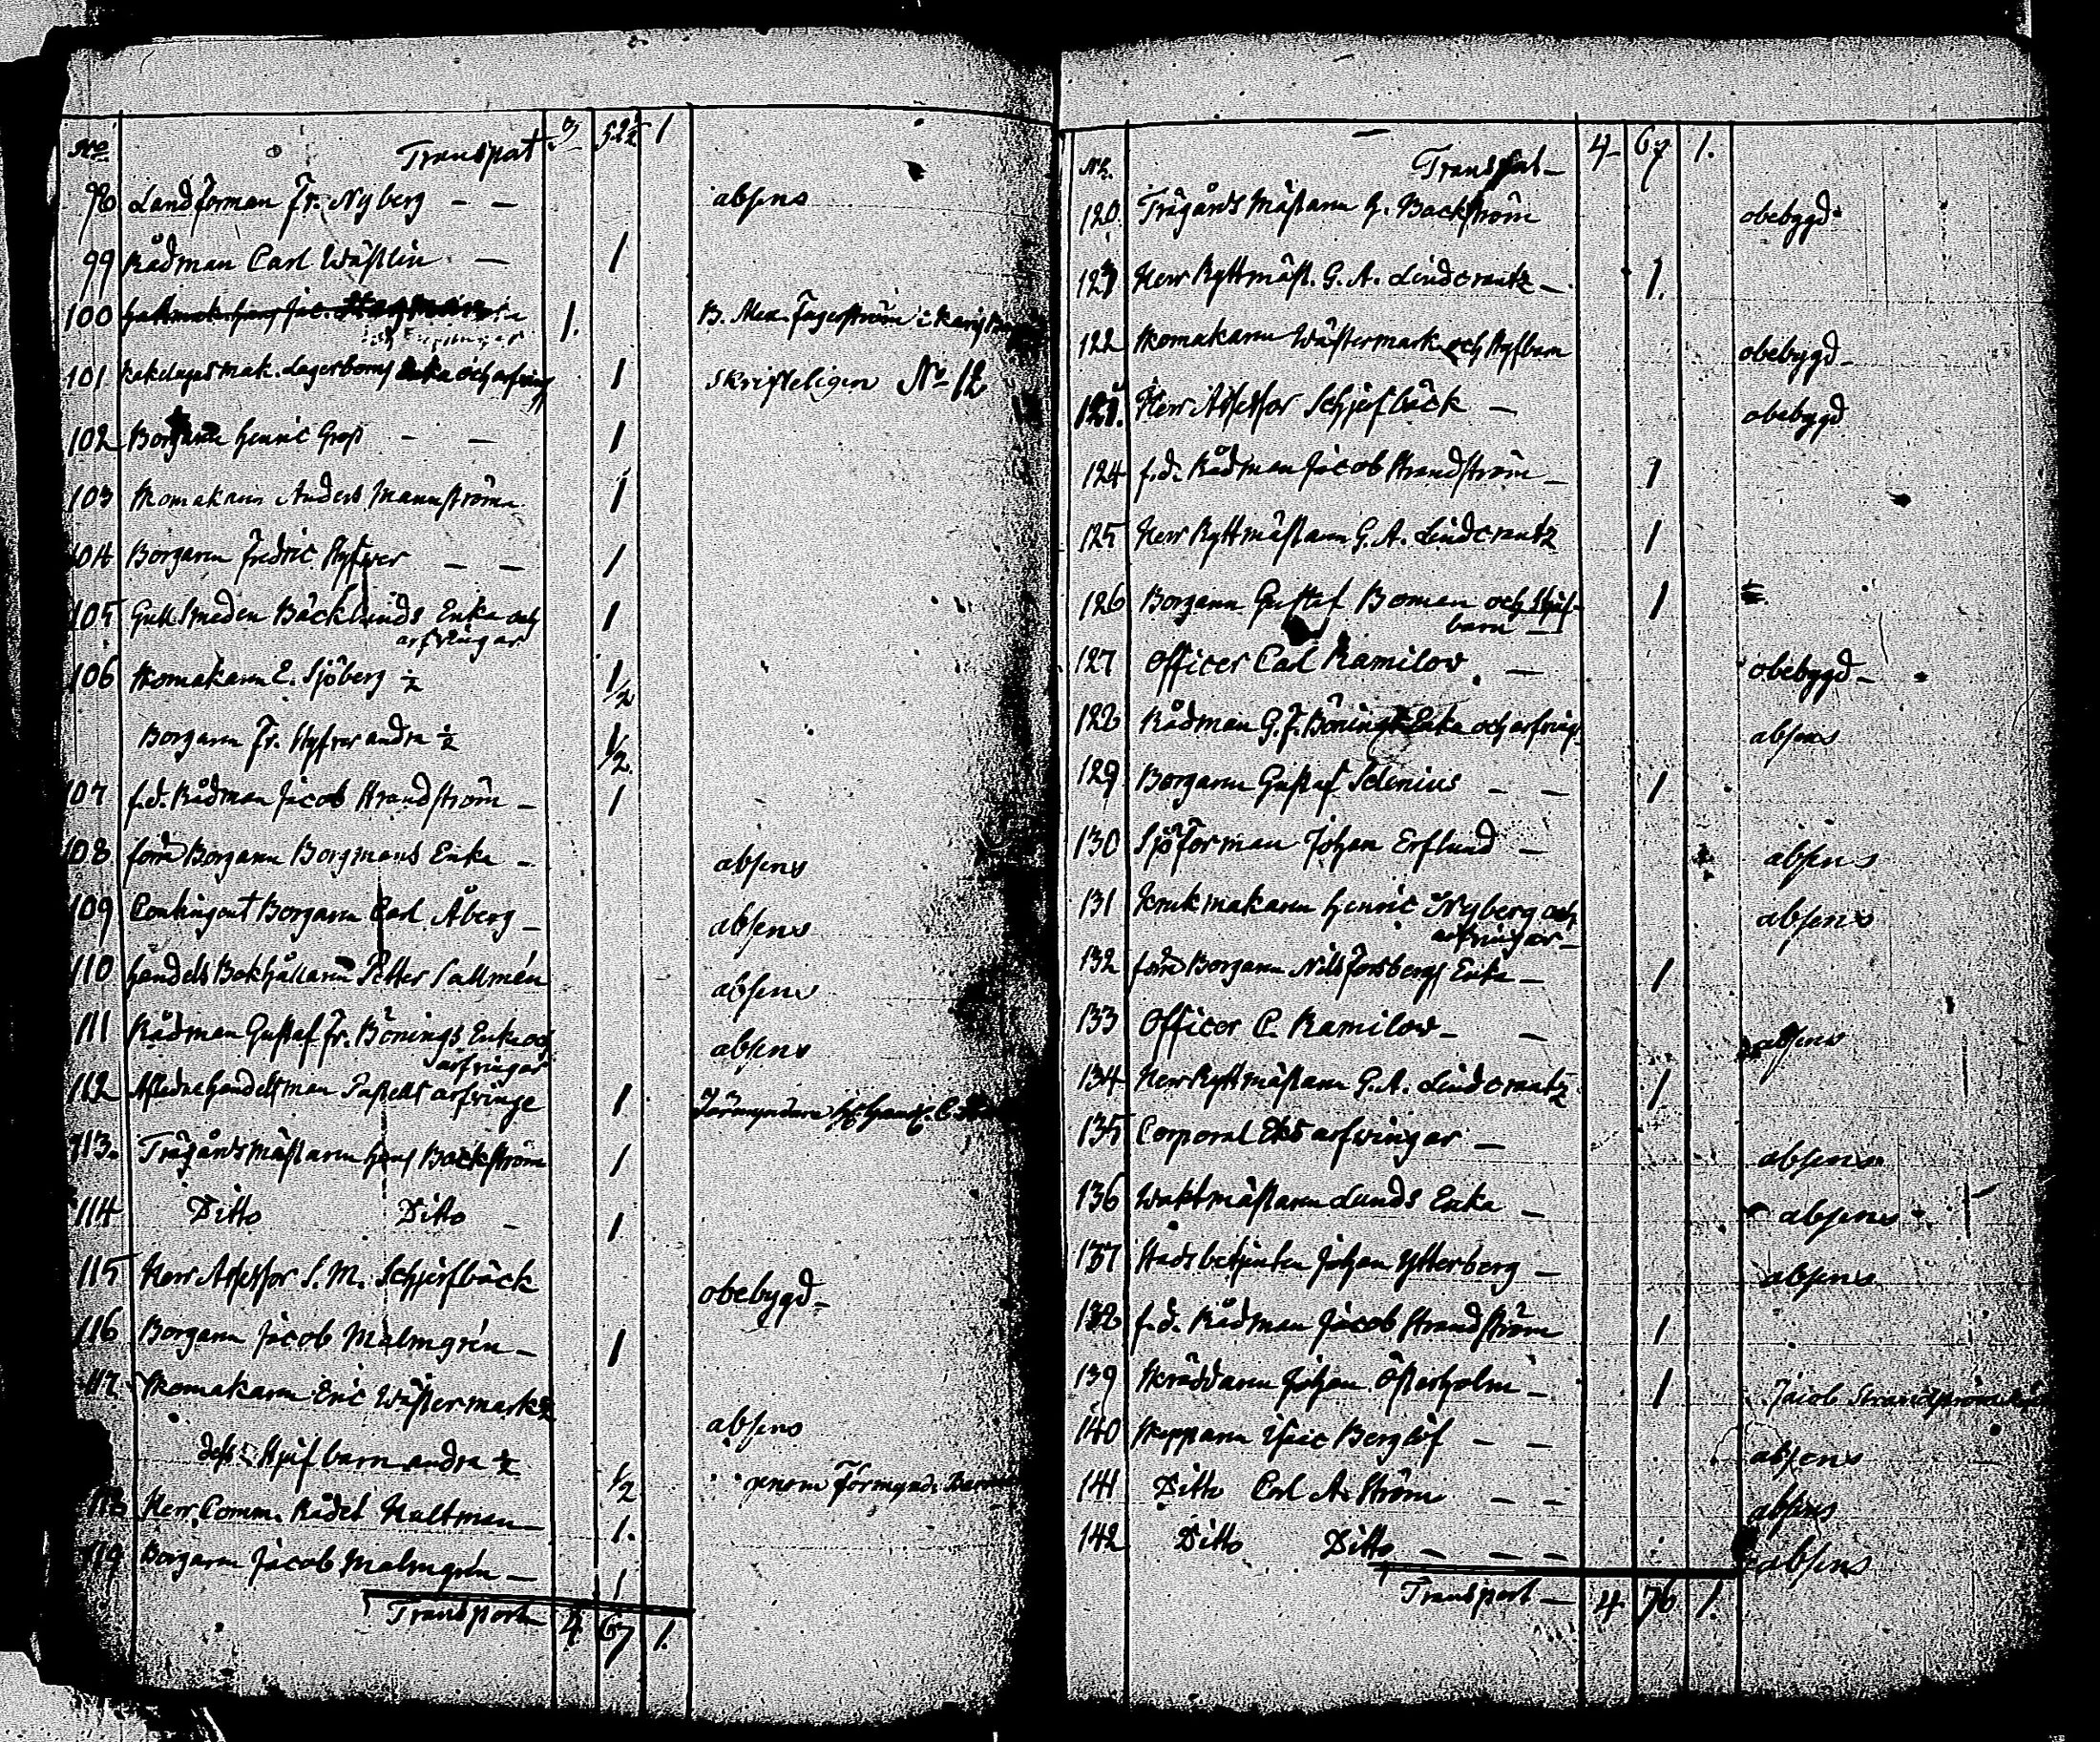 No Transpat 3 52½ 1
98 Landtorman Fr. Nyberg — — absens
99 Rådman Carl Wästlin — 1
100 1. B. Alex. Fagerström i
101 Kakelugnsmak. Lagerboms Enka och arfving 1 skrifteligen No 12
102 Borgaren Henric Gros — — 1
103 Skomakaren Anders Mannström 1
104 Borgaren Fredric Styfver — — 1
105 Gullsmeden Bäcklunds Enka och 1
arfvingar
106 Skomakaren E. Sjöberg ½ ½
Borgaren Fr. Styfver andra ½ ½.
107 f.d. Rådman Jacob Strandström — 1
108 förra Borgaren Borgmans Enka — absens
109 Contingent Borgaren Carl Åberg — absens
110 Handels Bokhållaren Petter Sallmén absens
111 Rådman Gustaf Fr. Bönings Enka och absens
arfvingar
112 Afledne handelsman arfvinge 1 Förmyndare
113. Trägårds Mästaren Hans Backström 1
114 Ditto Ditto — 1.
115 Herr Assessor S. M. Schjerfbäck obebygd —
116 Borgaren Jacob Malmgrén — 1
117 Skomakaren Eric Wästermark ½ absens
dess Styfbarn andra ½ ½ genom Förmynd.
118 Herr Comm. Rådet Haltman — 1.
119 Borgaren Jacob Malmgrén — 1
Transport 4 67 1.
No. Transpat — 4 67 1.
120. Trägårds Mästaren H. Backström obebygd
121 Herr Ryttmäst. G. A. Lindcrantz — 1.
122 Skomakaren Wästermark och Styfbarn obebygd —
123. Herr Assessor Schjerfbäck — obebygd
124 f.d. Rådman Jacob Strandström — 1
125 Herr Ryttmästaren G. A. Lindcrantz 1
126 Borgaren Gustaf Boman och Styf- 1
barn —
127 Officer Carl Kamilow — obebygd —
128 Rådman G. F. Bönings Enka och arfving absens
129 Borgaren Gustaf Selenius — — 1
130 Sjötorman Johan Erflund — absens
131 Krukmakaren Henric Nyberg och absens
arfvingar —
132 förra Borgaren Nils Forsbergs Enka — 1
133 Officer C. Kamilow — — absens
134 Herr Ryttmästaren G. A. Lindcrantz 1
135 Corporal Eks arfvingar — absens
136 Waktmästaren Lunds Enka — absens
137 Stadsbetjenten Johan Ytterberg — absens
138 f.d. Rådman Jacob Strandström 1
139 Skräddaren Johan Österholm — 1 Jacob Strandström
140 Skepparen Isaic Berglöf — — absens
141 Ditto Carl A. Ström — — absens
142 Ditto Ditto — — — absens
Transport — 4 76 1.